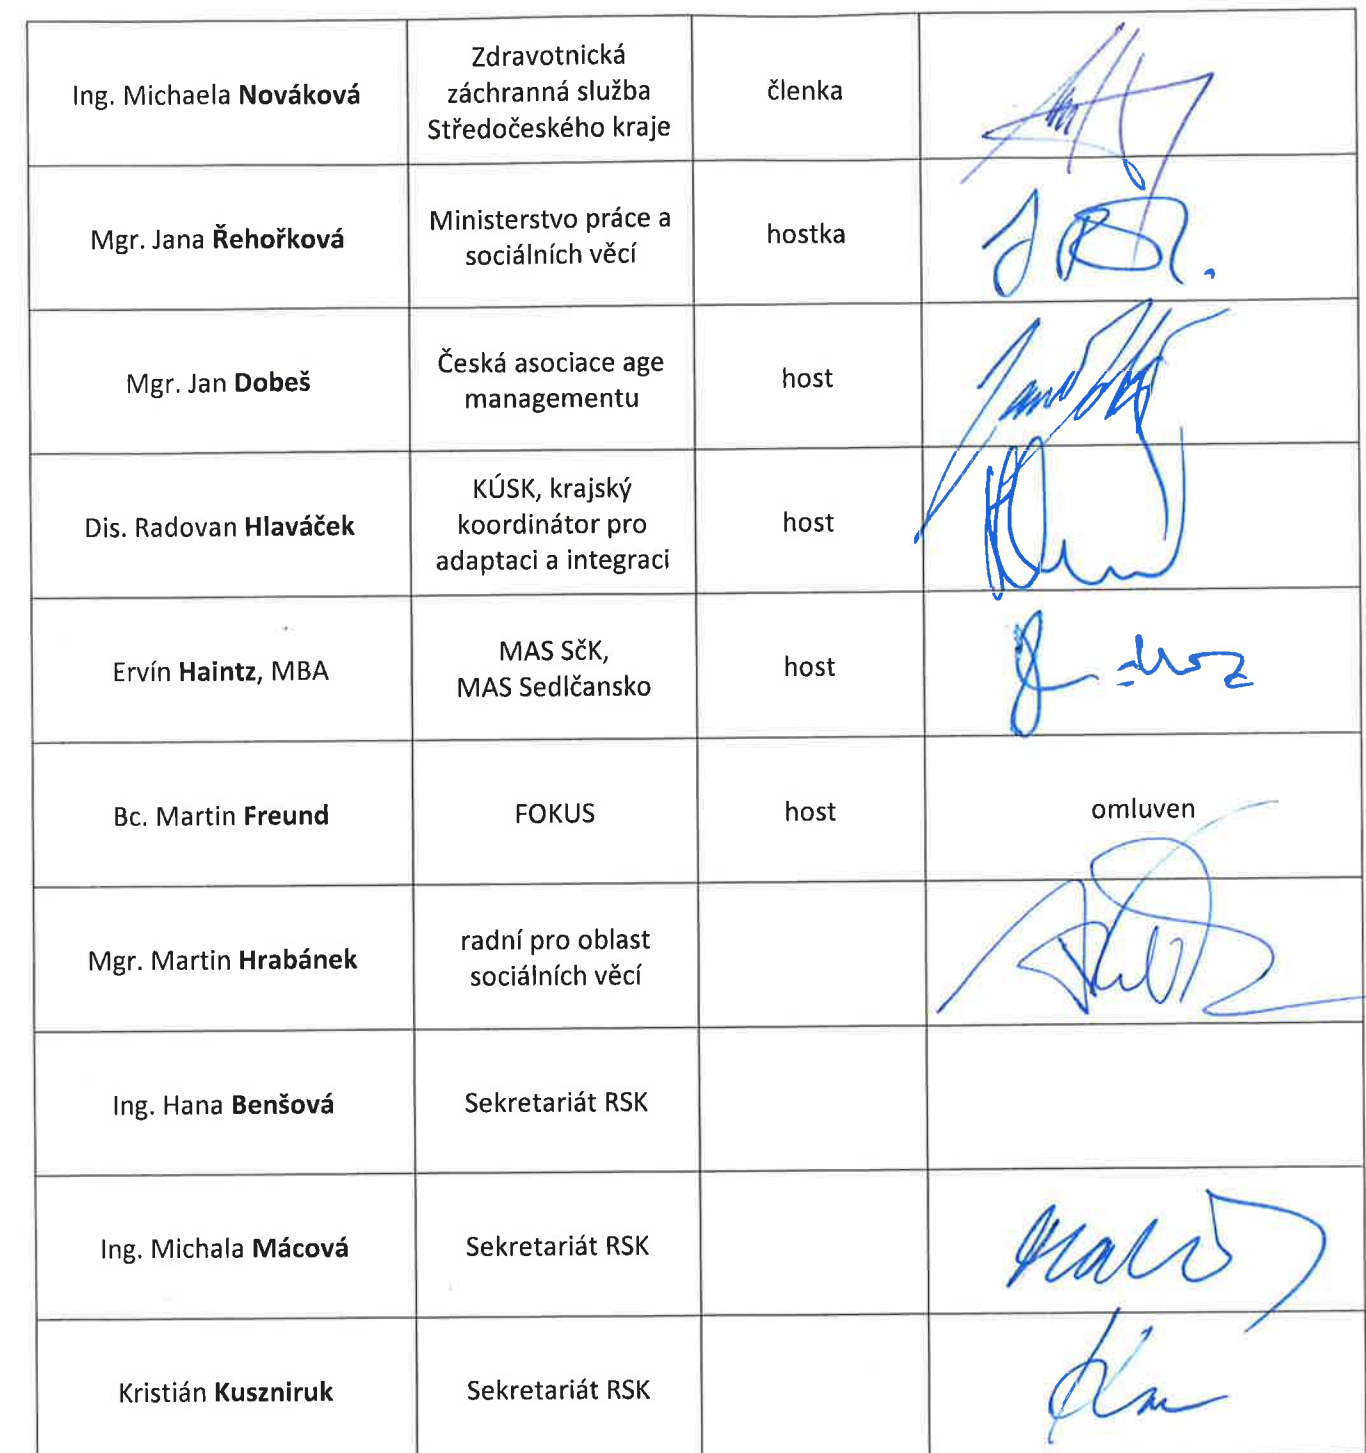 Ing. Michaela Nováková
Zdravotnická
záchranná služba
Středočeského kraje
členka
Mgr. Jana Řehořková
Ministerstvo práce a
sociálních věcí
hostka
Mgr. Jan Dobeš
Česká asociace age
managementu
host
Dis. Radovan Hlaváček
KÚSK, krajský
koordinátor pro
adaptaci a integraci
host
Ervín Haintz, MBA
MAS SčK,
MAS Sedlčansko
host
Bc. Martin Freund
FOKUS
host
omluven
Mgr. Martin Hrabánek
radní pro oblast
sociálních věcí
Ing. Hana Benšová
Sekretariát RSK
Ing. Michala Mácová
Sekretariát RSK
Kristián Kuszniruk
Sekretariát RSK